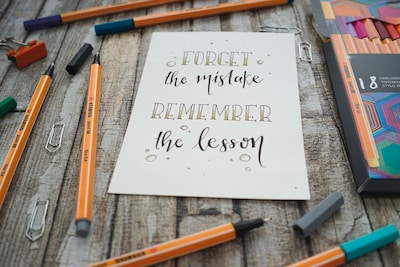 FORGET
the mistake
REMEMBER
the lesson
18